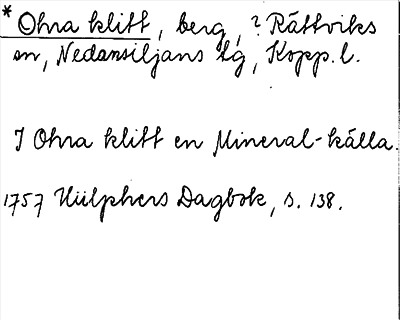 * Ohra klitt, berg, ? Rättviks
sn, Nedansiljans tg, Kopp. l.
I Ohra klitt en Mineral-källa.
1757 Hülphers Dagbok, s. 138.